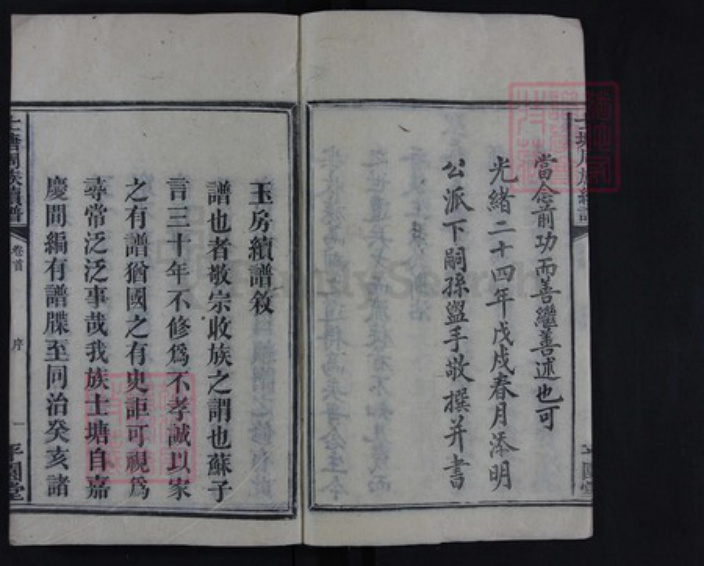 當念前功而善繼善述也可
光緒二十四年戊戌春月添明
公派下嗣孫盥手敬撰并書
玉房續譜敘
譜也者敬宗收族之謂也蘇子
言三十年不修為不孝誠以家
之有譜猶國之有史詎可視為
尋常泛泛事哉我族士塘自嘉
慶間編有譜牒至同治癸亥諸
士塘周族續譜
卷首
序
一
平園堂